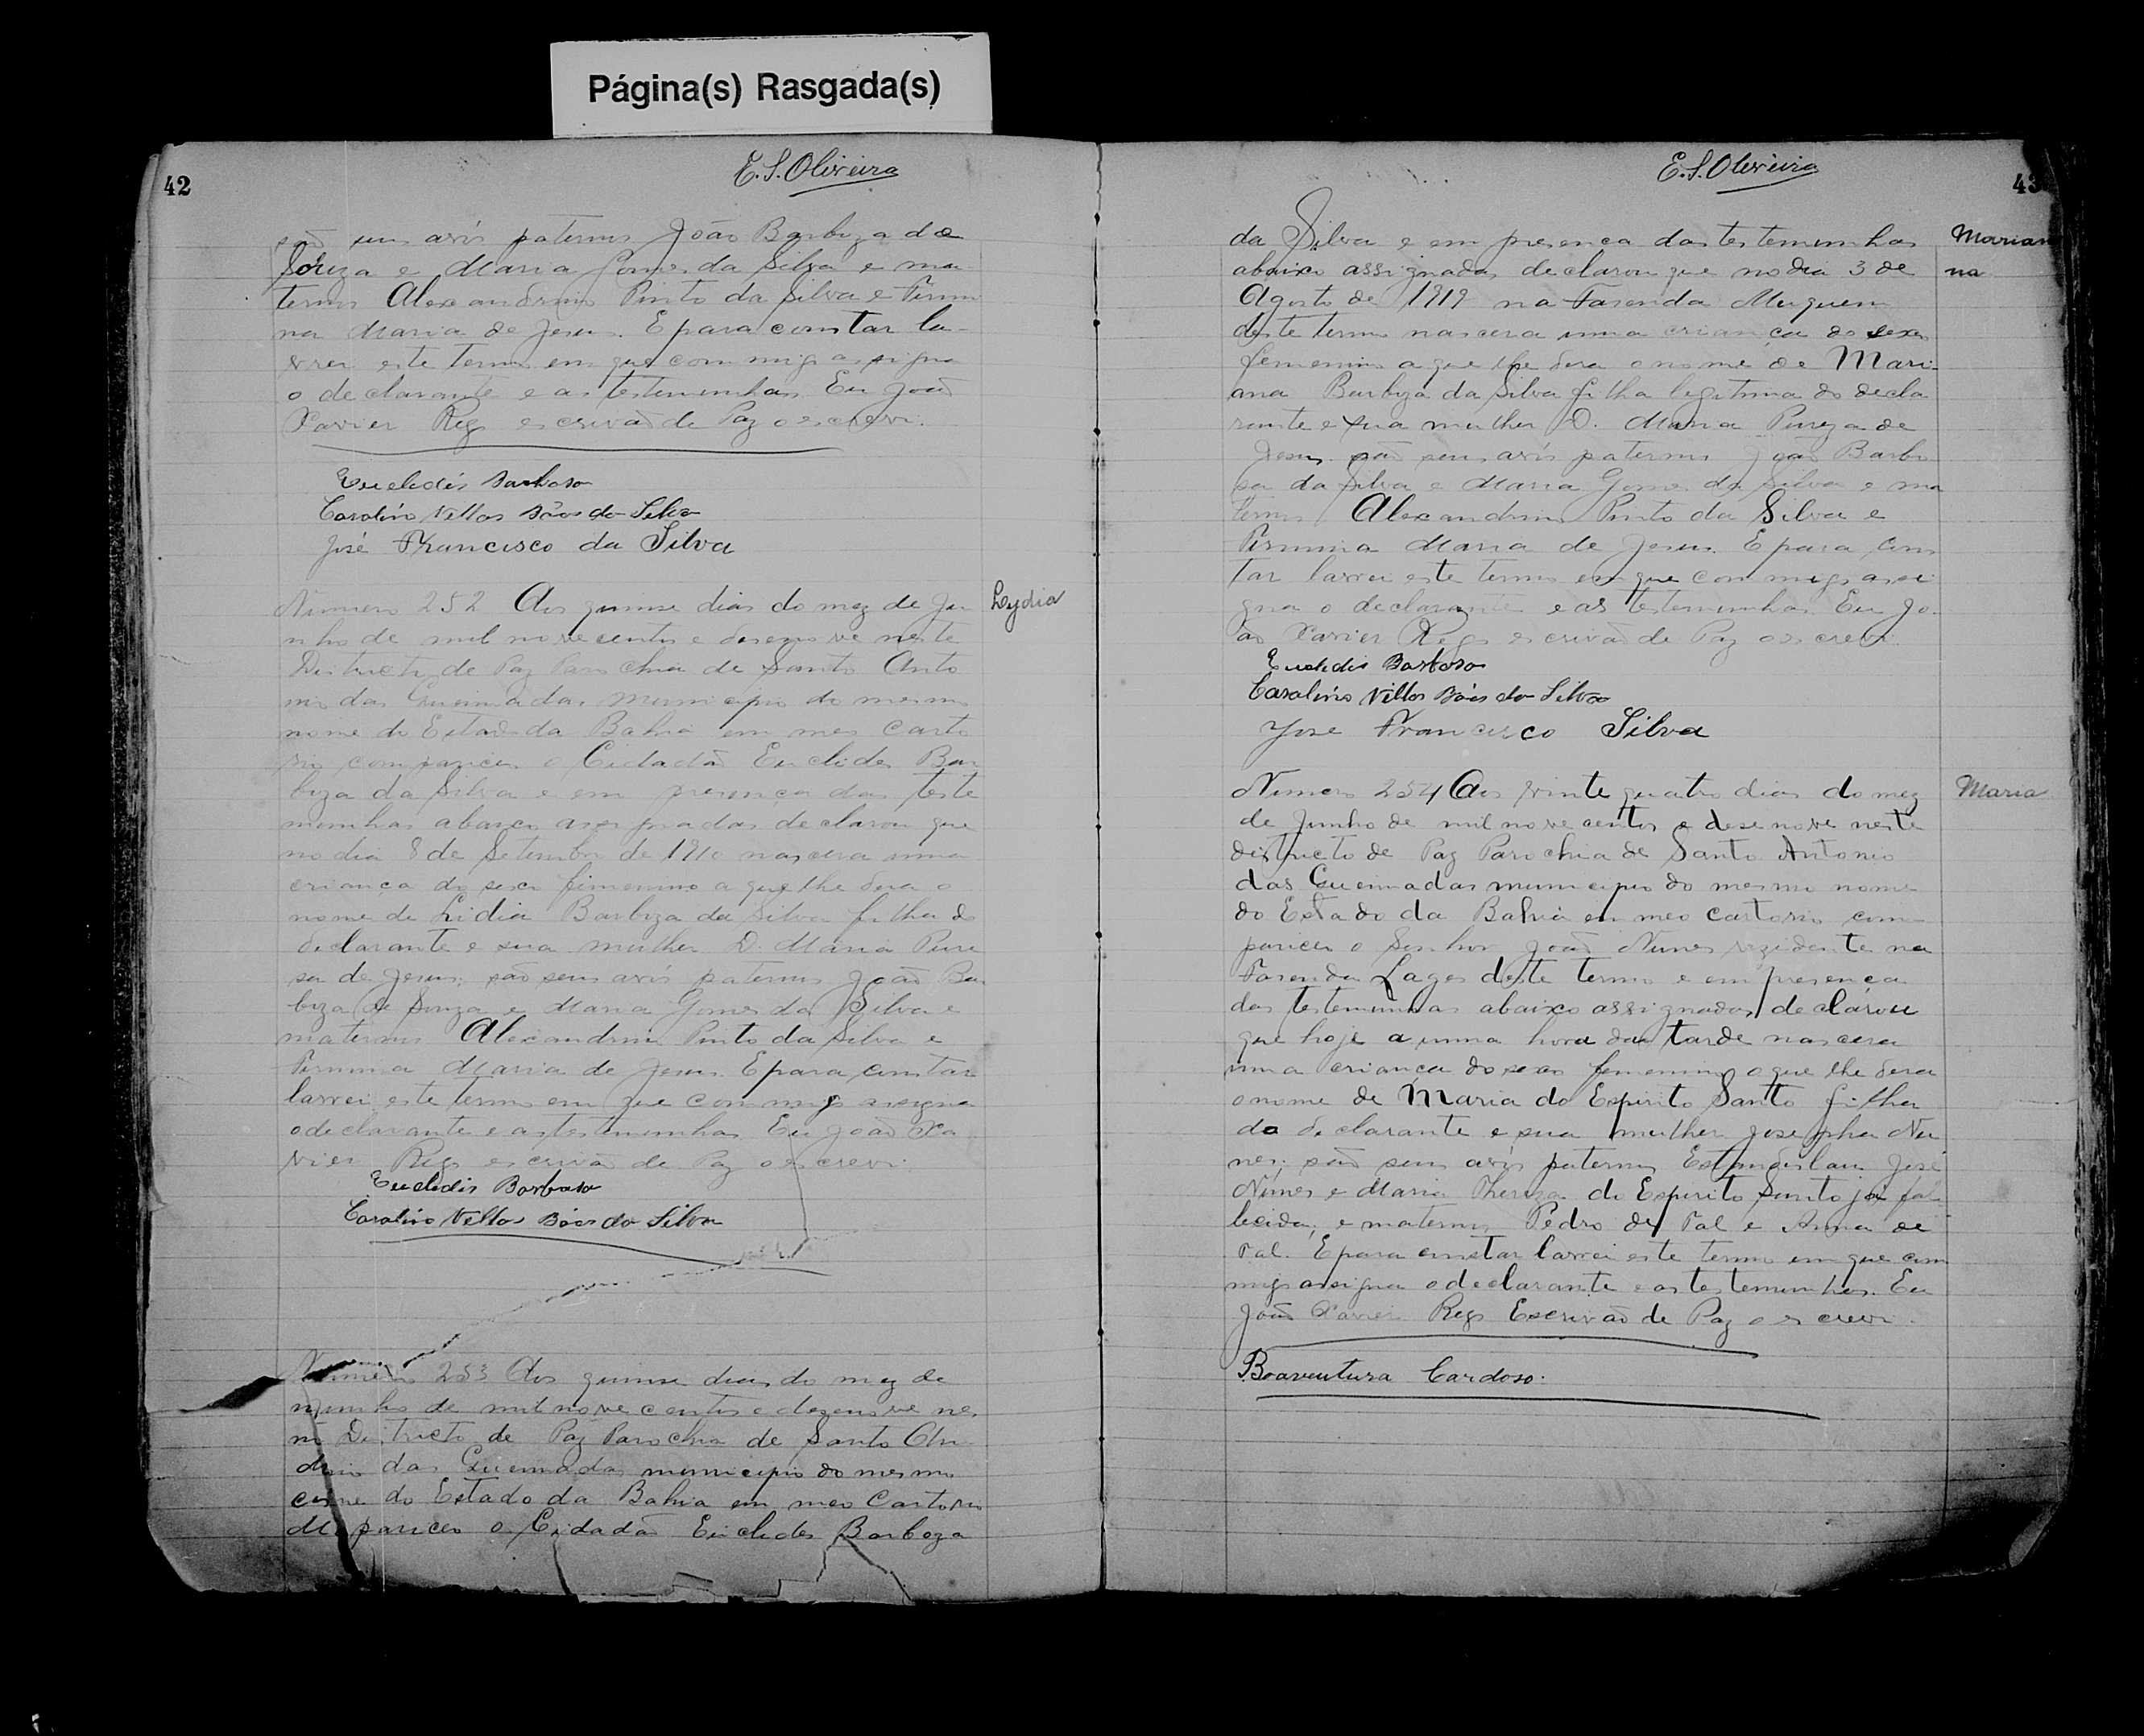 Página(s) Rasgada(s)
42
E.S.Oliveira
são seus avós paternos João Barboza de
Souza e Maria Gomes da Silva e ma-
ternos Alexandrino Pinto da Silva e Firmi
na Maria de Jesus. E para constar la-
vrei este termo em que commigo assigna
o declarante e as testemunhas Eu João
Xavier Rego escrivão de Paz o escrevi.
Euclidis Barboso
Carolino Villas Bôas da Silva
José Francisco da Silva
Lydia
Numero 252 Aos quinse dias do mez de Ju
nho de mil novecentos e desenove neste
Districto de Paz Parochia de Santo Anto
nio das Queimadas municipio do mesmo
nome do Estado da Bahia em meo Carto
rio compareceu o Cidadão Euclides Bar
boza da Silva e em presença das teste
munhas abaixo assignadas declarou que
no dia 8 de Setembro de 1910 nascera uma
criança do sexo femenino a que lhe dera o
nome de Lidia Barboza da Silva filha do
declarante e sua mulher D. Maria Pure
sa de Jesus; são seus avós paternos João Bar
boza de Souza e Maria Gomes da Silva e
maternos Alexandrino Pinto da Silva e
Firmina Maria de Jesus. E para constar
lavrei este termo em que commigo assigna
o declarante e as testemunhas Eu João Xa
vier Rego escrivão de Paz o escrevi.
Euclidis Barboso
Carolino Villas Bôas da Silva
Numero 253 Aos quinse dias do mez de
junho de mil novecentos e dezenove nes
Districto de Paz Parochia de Santo An
das Queimadas municipio do mesmo
do Estado da Bahia em meo Cartorio
pareceu o Cidadão Euclides Barboza
43
E.S.Oliveira
Marian
na
da Silva e em presença das testemunhas
abaixo assignadas declarou que no dia 3 de
Agosto de 1919 na Fasenda Muquem
deste termo nascera uma criança do sexo
femenino a que lhe dera o nome de Mari-
ana Barboza da Silva filha legitima do decla
rante e sua mulher D. Maria Pureza de
Jesus são seus avós paternos João Barbo
sa da Silva e Maria Gomes da Silva e ma
ternos Alexandrino Pinto da Silva e
Firmina Maria de Jesus. E para cons
tar lavrei este termo em que commigo assi
gna o declarante e as testemunhas. Eu Jo-
ão Xavier Rego escrivão de Paz o escrevi
Euclidis Barboso
Carolino Villas Bôas da Silva
Jose Francisco Silva
Maria
Numero 254 Aos vinte quatro dias do mez
de Junho de mil novecentos e desenove neste
districto de Paz Parochia de Santo Antonio
das Queimadas municipio do mesmo nome
do Estado da Bahia em meo cartorio com-
pareceu o Senhor João Nunes rezidente na
Fasenda Lages deste termo e em presença
das testemunhas abaixo assignadas declarou
que hoje a uma hora da tarde nascera
uma criança do sexo femenino a que lhe dera
o nome de Maria do Espirito Santo filha
do declarante e sua mulher Josepha Nu
nes; são seus avós paternos Estandislau José
Nunes e Maria Thereza do Espirito Santo já fal-
lecida; e maternos Pedro de Tal e Anna de
Tal. E para constar lavrei este termo em que com
migo assigna o declarante e as testemunhas. Eu
João Xavier Rego Escrivão de Paz o escrevi.
Boaventura Cardoso.